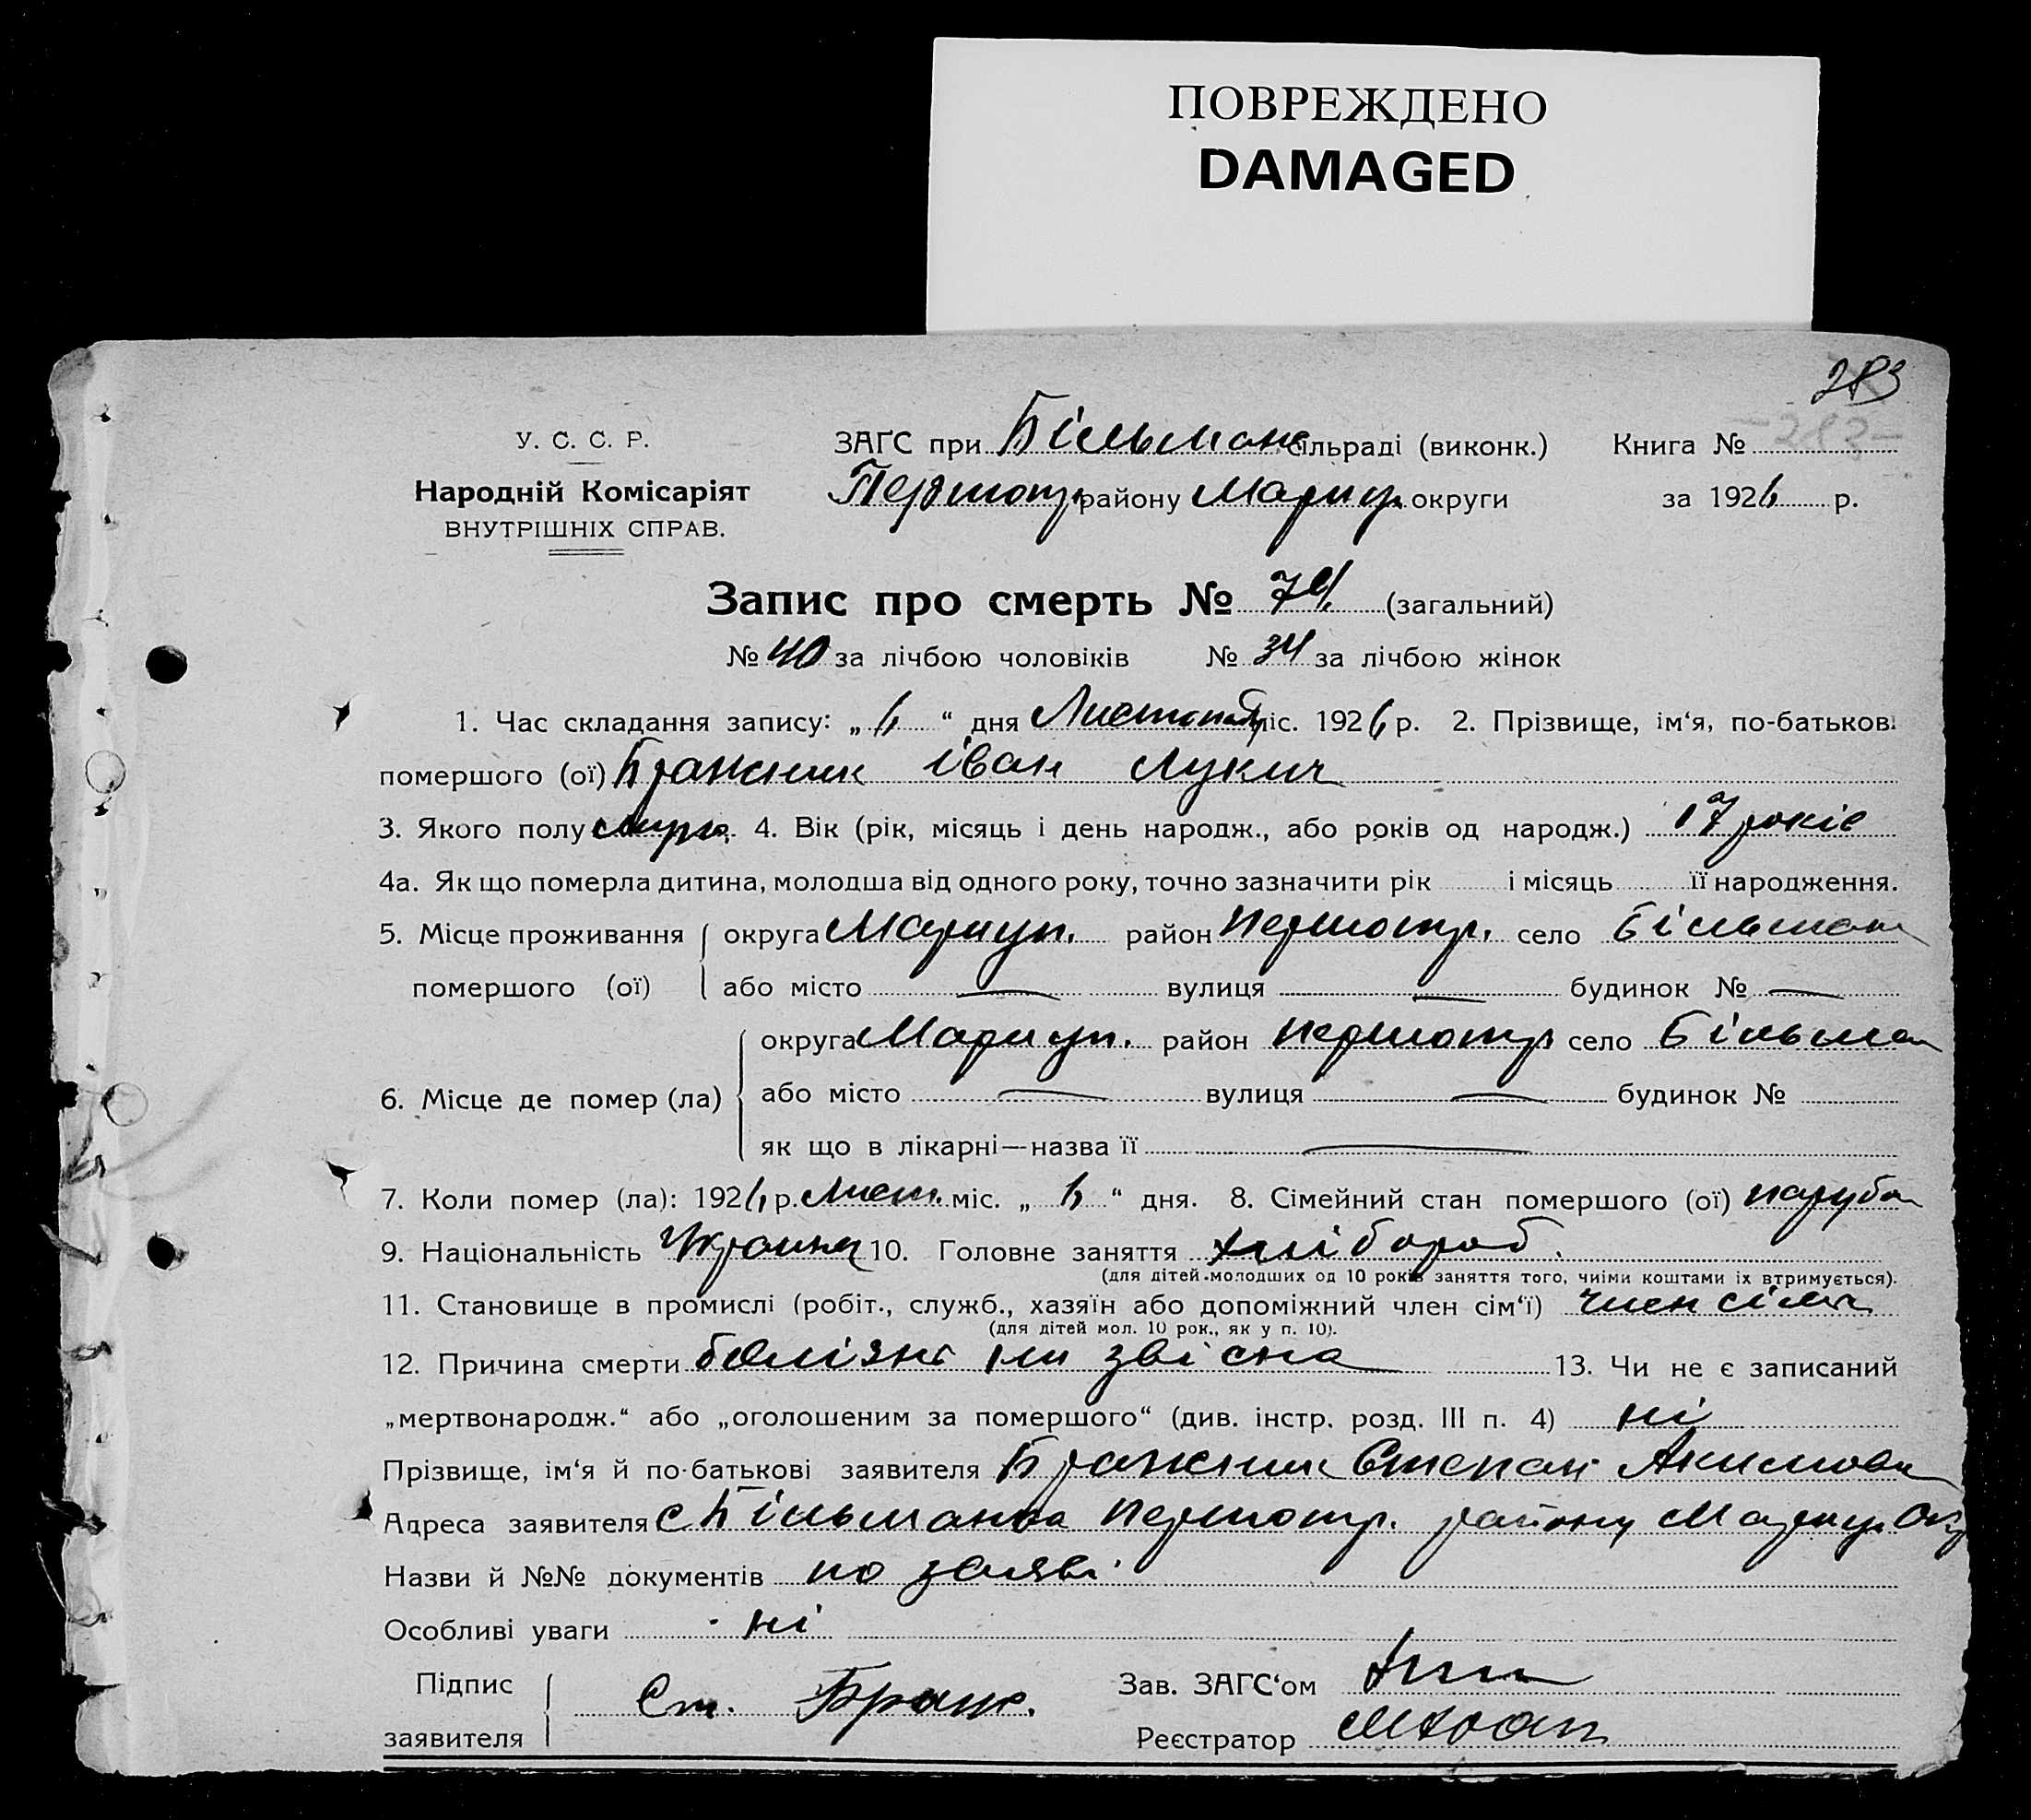 ПОВРЕЖДЕНО
DAMAGED
283
У. С. С. Р.
Народній Комісаріят
ВНУТРІШНІХ СПРАВ.
ЗАҐС при Більманс сільраді (виконк.) Книга № -283-
Першотр. району Маріуп. округи за 1926 р.
Запис про смерть № 74 (загальний)
№ 40 за лічбою чоловіків № 34 за лічбою жінок
1. Час складання запису: „ 6 “ дня Листопад міс. 1926 р. 2. Прізвище, ім‘я, по-батькові
помершого (ої) Бражник Іван Лукич
3. Якого полу 4. Вік (рік, місяць і день народж., або років од народж.) 17 років
4а. Як що померла дитина, молодша від одного року, точно зазначити рік і місяць її народження.
5. Місце проживання помершого (ої) округа Мариуп. район Першотр. село Більман
або місто — вулиця — будинок № —
6. Місце де помер (ла) округа Мариуп. район Першотр село Більман
або місто — вулиця — будинок №
як що в лікарні—назва її —
7. Коли помер (ла): 1926 р. Лист. міс. „ 6 “ дня. 8. Сімейний стан помершого (ої) парубок
9. Національність Украинец 10. Головне заняття хлібороб.
(для дітей молодших од 10 років заняття того, чиїми коштами їх втримується).
11. Становище в промислі (робіт., служб., хазяїн або допоміжний член сім‘ї) член сімї
(для дітей мол. 10 рок., як у п. 10).
12. Причина смерти болізнь ни звісна 13. Чи не є записаний
„мертвонародж.“ або „оголошеним за помершого“ (див. інстр. розд. III п. 4) ні
Прізвище, ім‘я й по-батькові заявителя Бражник Степан Акимович
Адреса заявителя с Більманка Першотр. району Мариуп. Окр
Назви й №№ документів по заяві
Особливі уваги ні
Підпис заявителя Ст. Браж. Зав. ЗАГС‘ом
Реєстратор